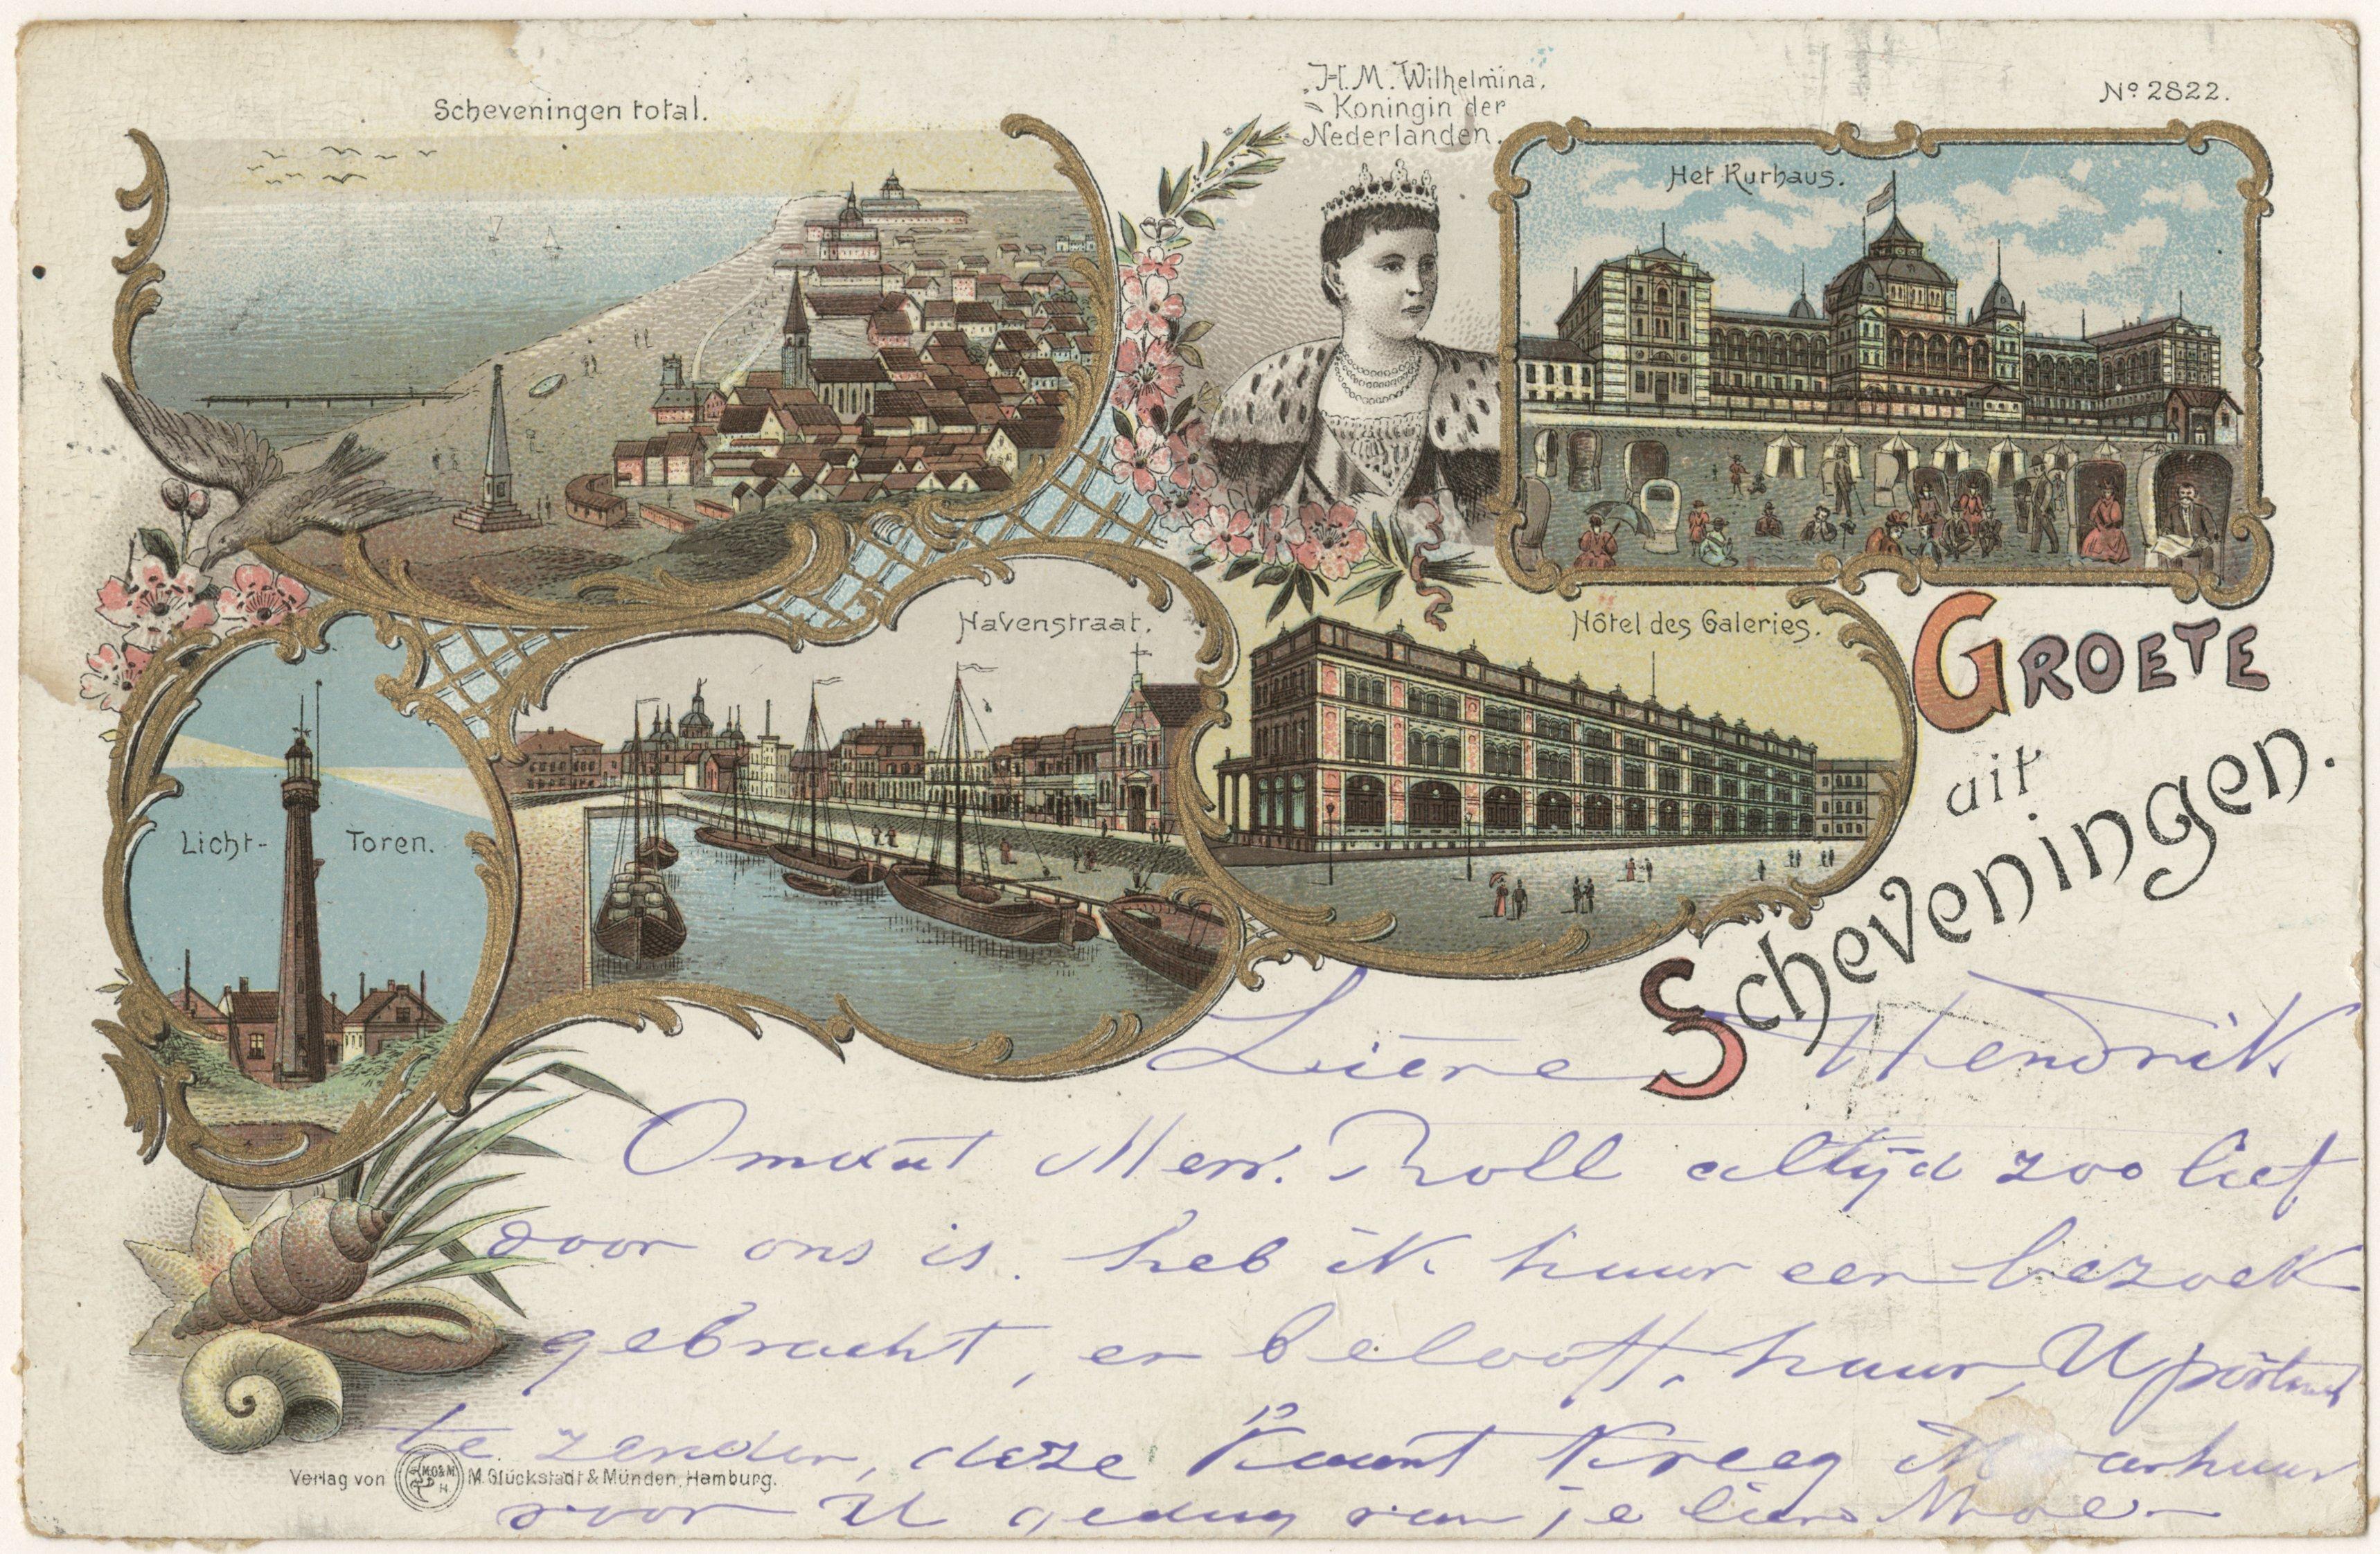 Scheveningen total.
H. M. Wilhelmina,
Koningin der
Nederlanden.
No 2822.
Het Kurhaus.
Havenstraat.
Hôtel des Galeries.
Licht-Toren.
GROETE
uit
Scheveningen.
Lieve Hendrik
Omdat Mevr. Roll altijd zoo lief
voor ons is. heb ik haar een bezoek
gebracht, en belooft, haar, U
te zenden, deze kaart kreeg ik
voor U van je lieve Moe
Verlag von M. Glückstadt & Münden, Hamburg.